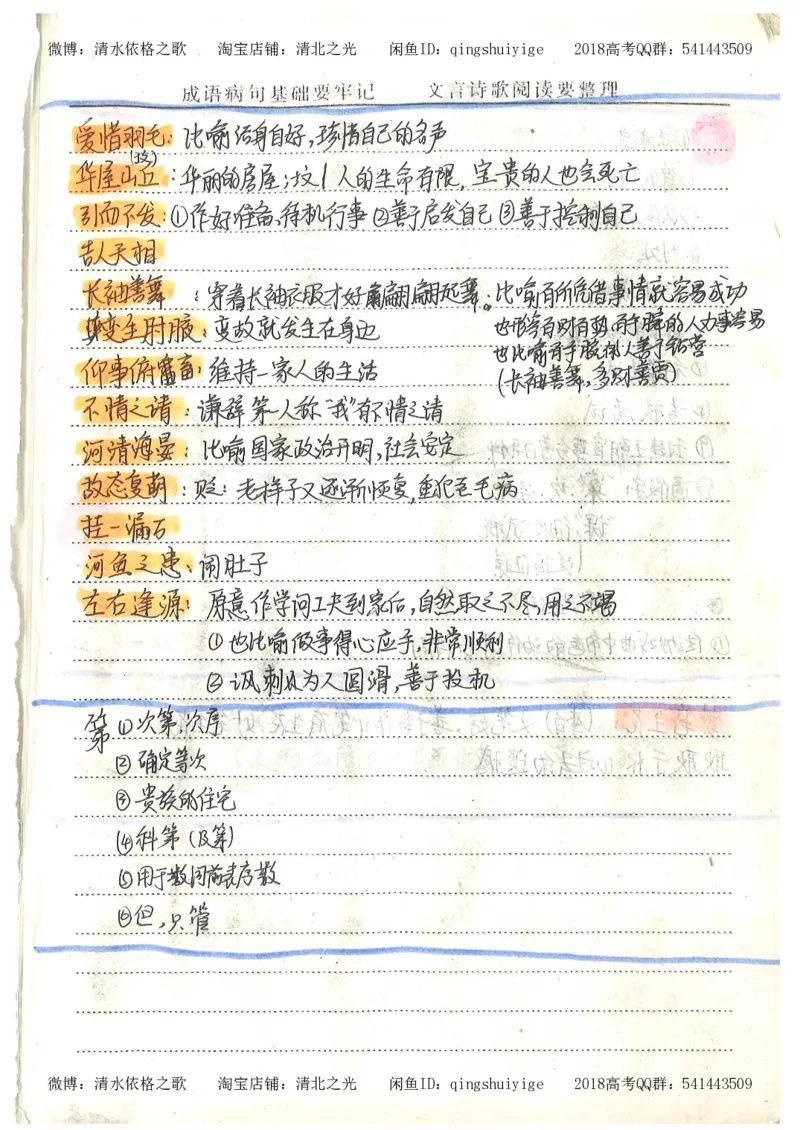 微博：清水依格之歌 淘宝店铺：清北之光 闲鱼ID：qingshuiyige 2018高考QQ群：541443509
成语病句基础要牢记 文言诗歌阅读要整理
爱惜羽毛：比喻洁身自好，珍惜自己的名声
华屋山丘：华丽的房屋；坟 人的生命有限，宝贵的人也会死亡
引而不发：①作好准备，待机行事 ②善于启发自己 ③善于控制自己
吉人天相
长袖善舞：穿着长袖衣服才好翩翩起舞。比喻有所凭借事情就容易成功
也形容有财有势 有手腕的人办事容易
变生肘腋：变故就发生在身边
也比喻有手腕的人善于钻营
仰事俯畜：维持一家人的生活
(长袖善舞，多财善贾)
不情之请：谦辞 第一人称“我”有不情之请
河清海晏：比喻国家政治开明，社会安定
故态复萌：贬：老样子又逐渐恢复，重犯老毛病
挂一漏万
河鱼之患：闹肚子
左右逢源：原意作学问工夫到家后，自然取之不尽，用之不竭
①也比喻做事得心应手，非常顺利
②讽刺人为人圆滑，善于投机
第 ①次第，次序
②确定等次
③贵族的住宅
④科第（及第）
⑤用于数词前表序数
⑥但，只管
微博：清水依格之歌 淘宝店铺：清北之光 闲鱼ID：qingshuiyige 2018高考QQ群：541443509